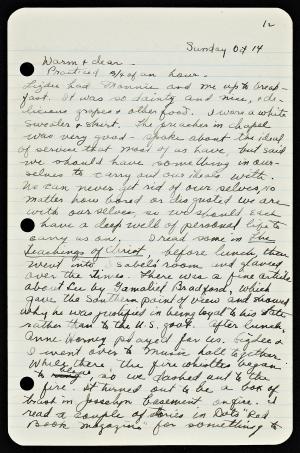 12
Sunday Oct 14
Warm & clear -
Practiced 3/4 of an hour.
Lizdee had Mannie and me up to break-
fast. It was so dainty and nice, & de-
licious grapes & other food. I wore a white
sweater & skirt. The preacher in Chapel
was very good - spoke about the ideal
of service that most of us have, but said
we should have something in our-
selves to carry out our ideals with.
We can never get rid of ourselves, no
matter how bored or disgusted we are
with ourselves, so we should each
have a deep well of personal life to
carry us on. I read some in The
Teachings of Christ, before lunch, then
went into Isabel's room and glanced
over the Times. There was a fine article
about Lee by Gamaliel Bradford, which
gave the Southern point of view and showed
why he was justified in being loyal to his state
rather than to the U.S. govt. After lunch,
Anne played for us. Lizdee &
I went over to Music hall together.
While there, the fire whistles began
to so we dashed out to the
fire. It turned out to be a box of
trash in Josselyn basement on fire. I
read a couple of stories in Dot's "Red
Book magazine" for something to